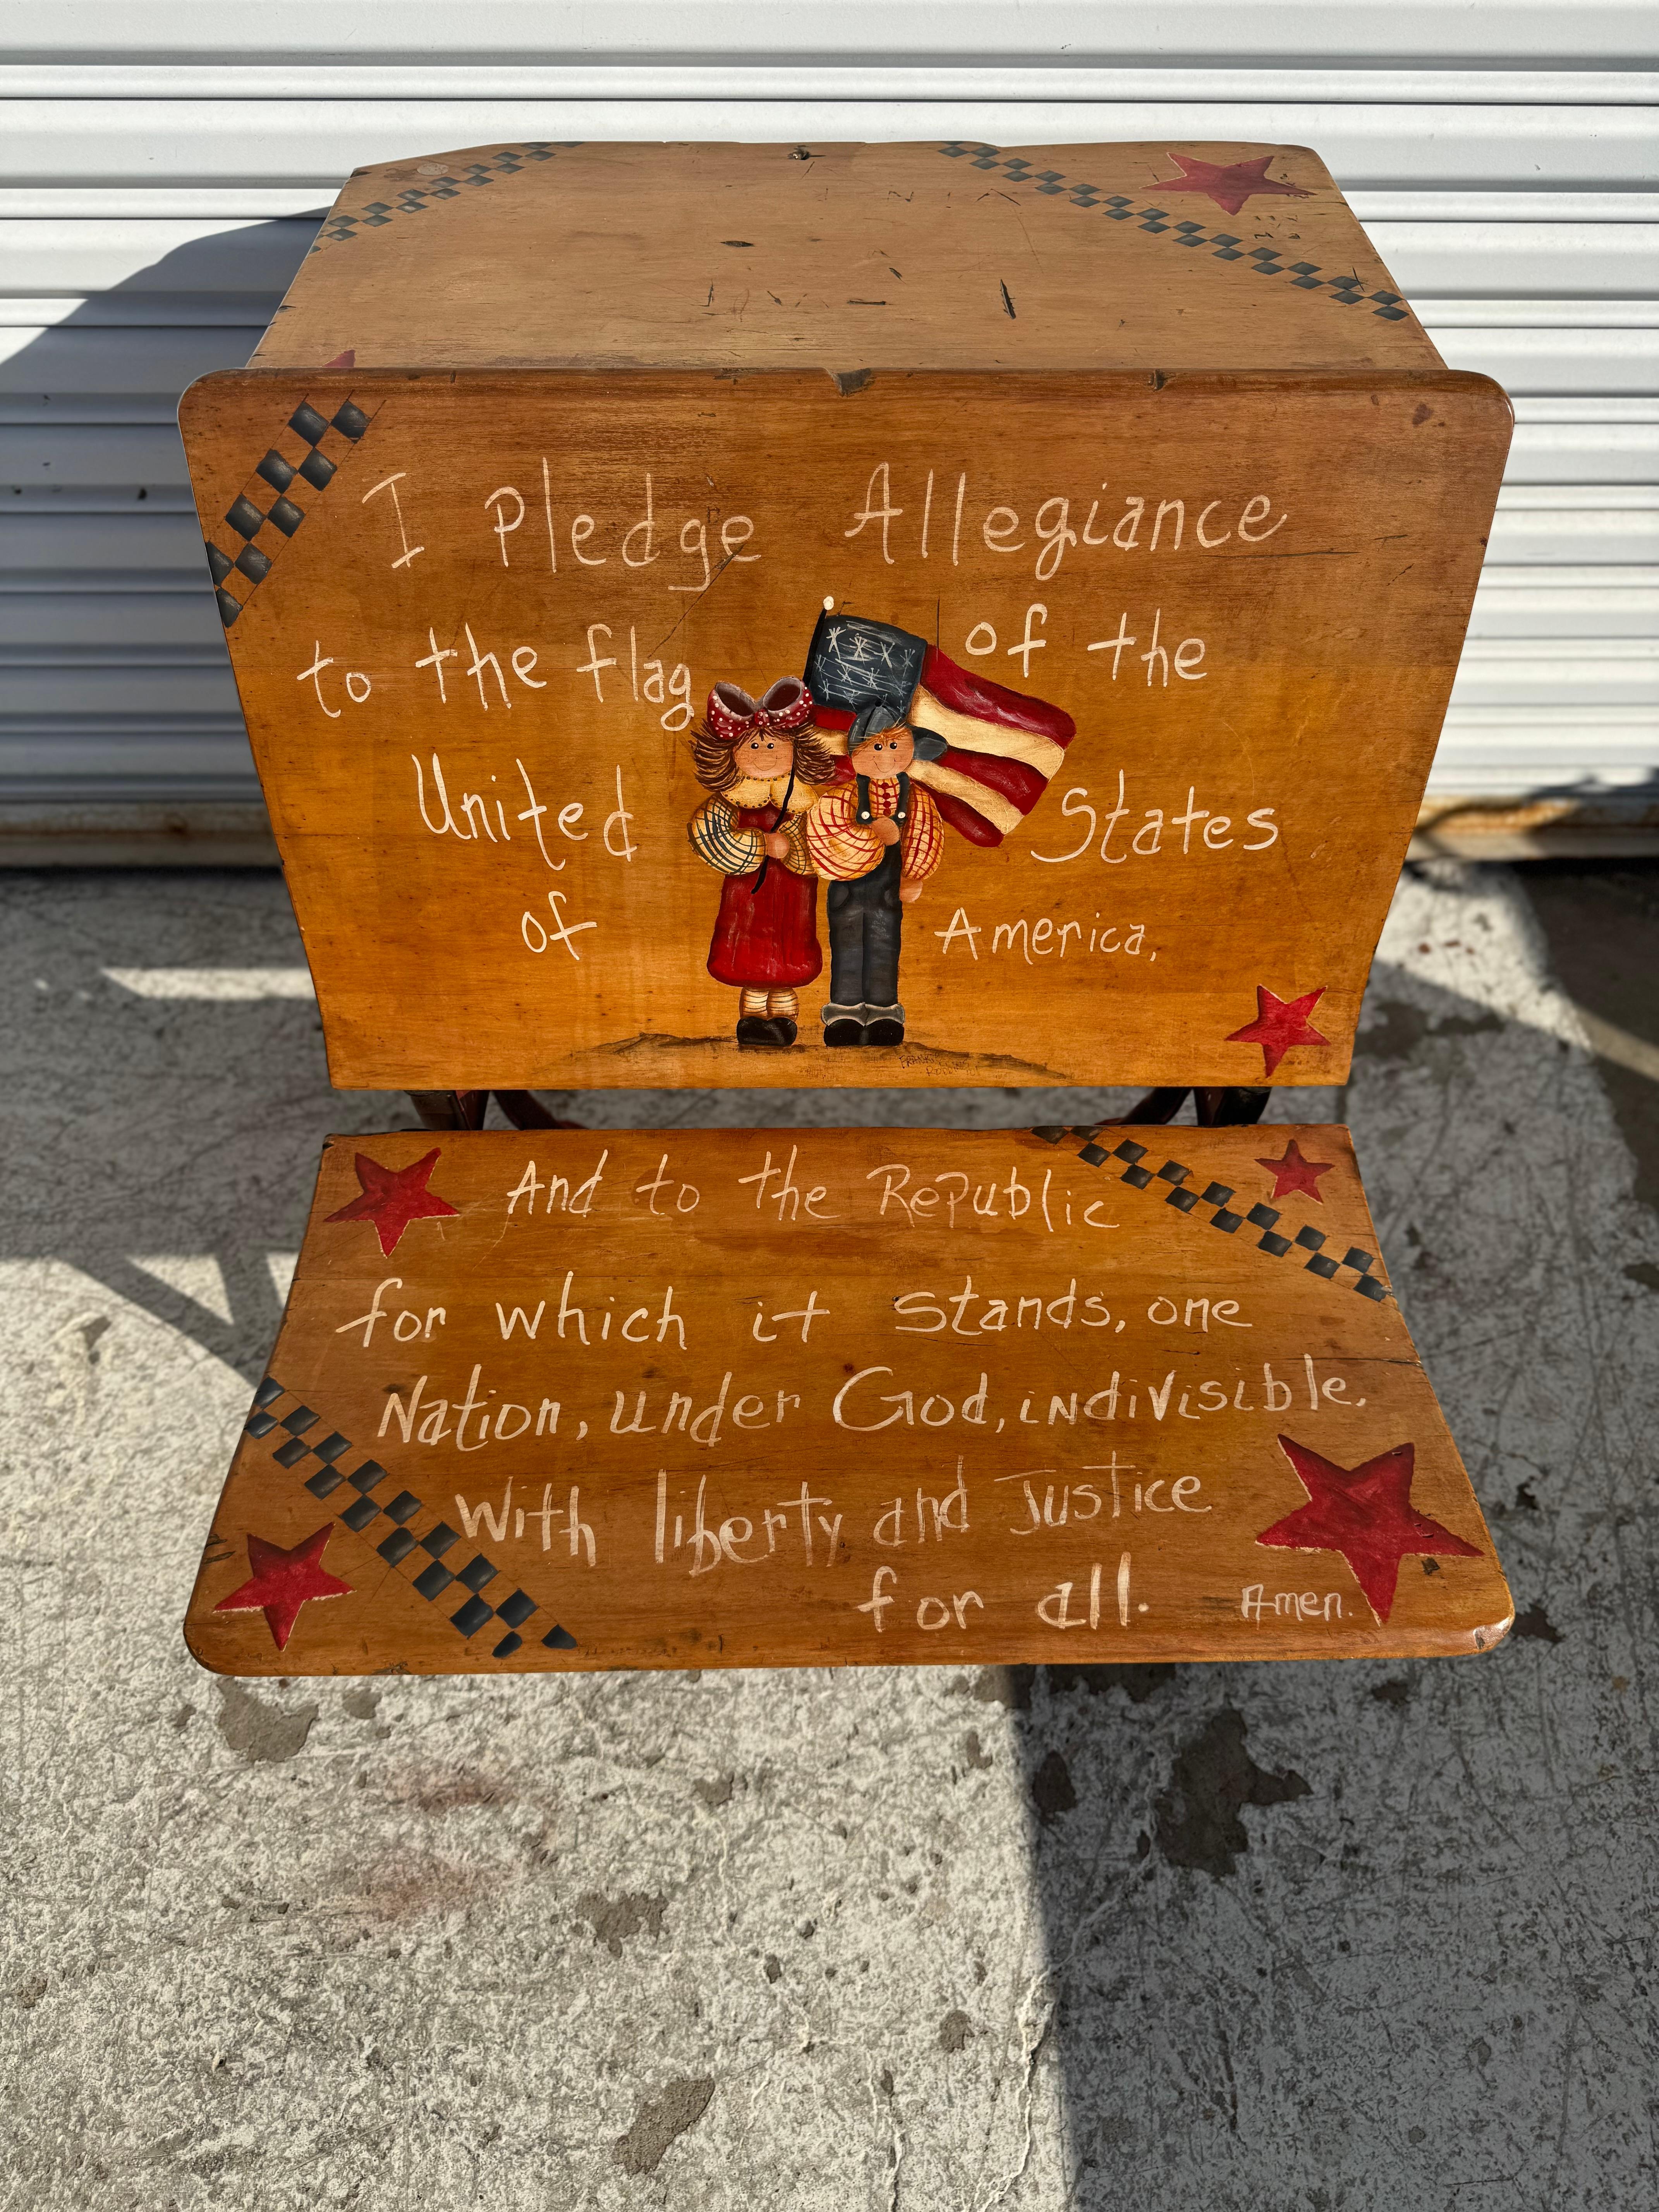 I Pledge Allegiance
to the flag of the
United States
of America,
And to the Republic
for which it stands, one
Nation, under God, indivisible.
With liberty and Justice
for all. Amen.